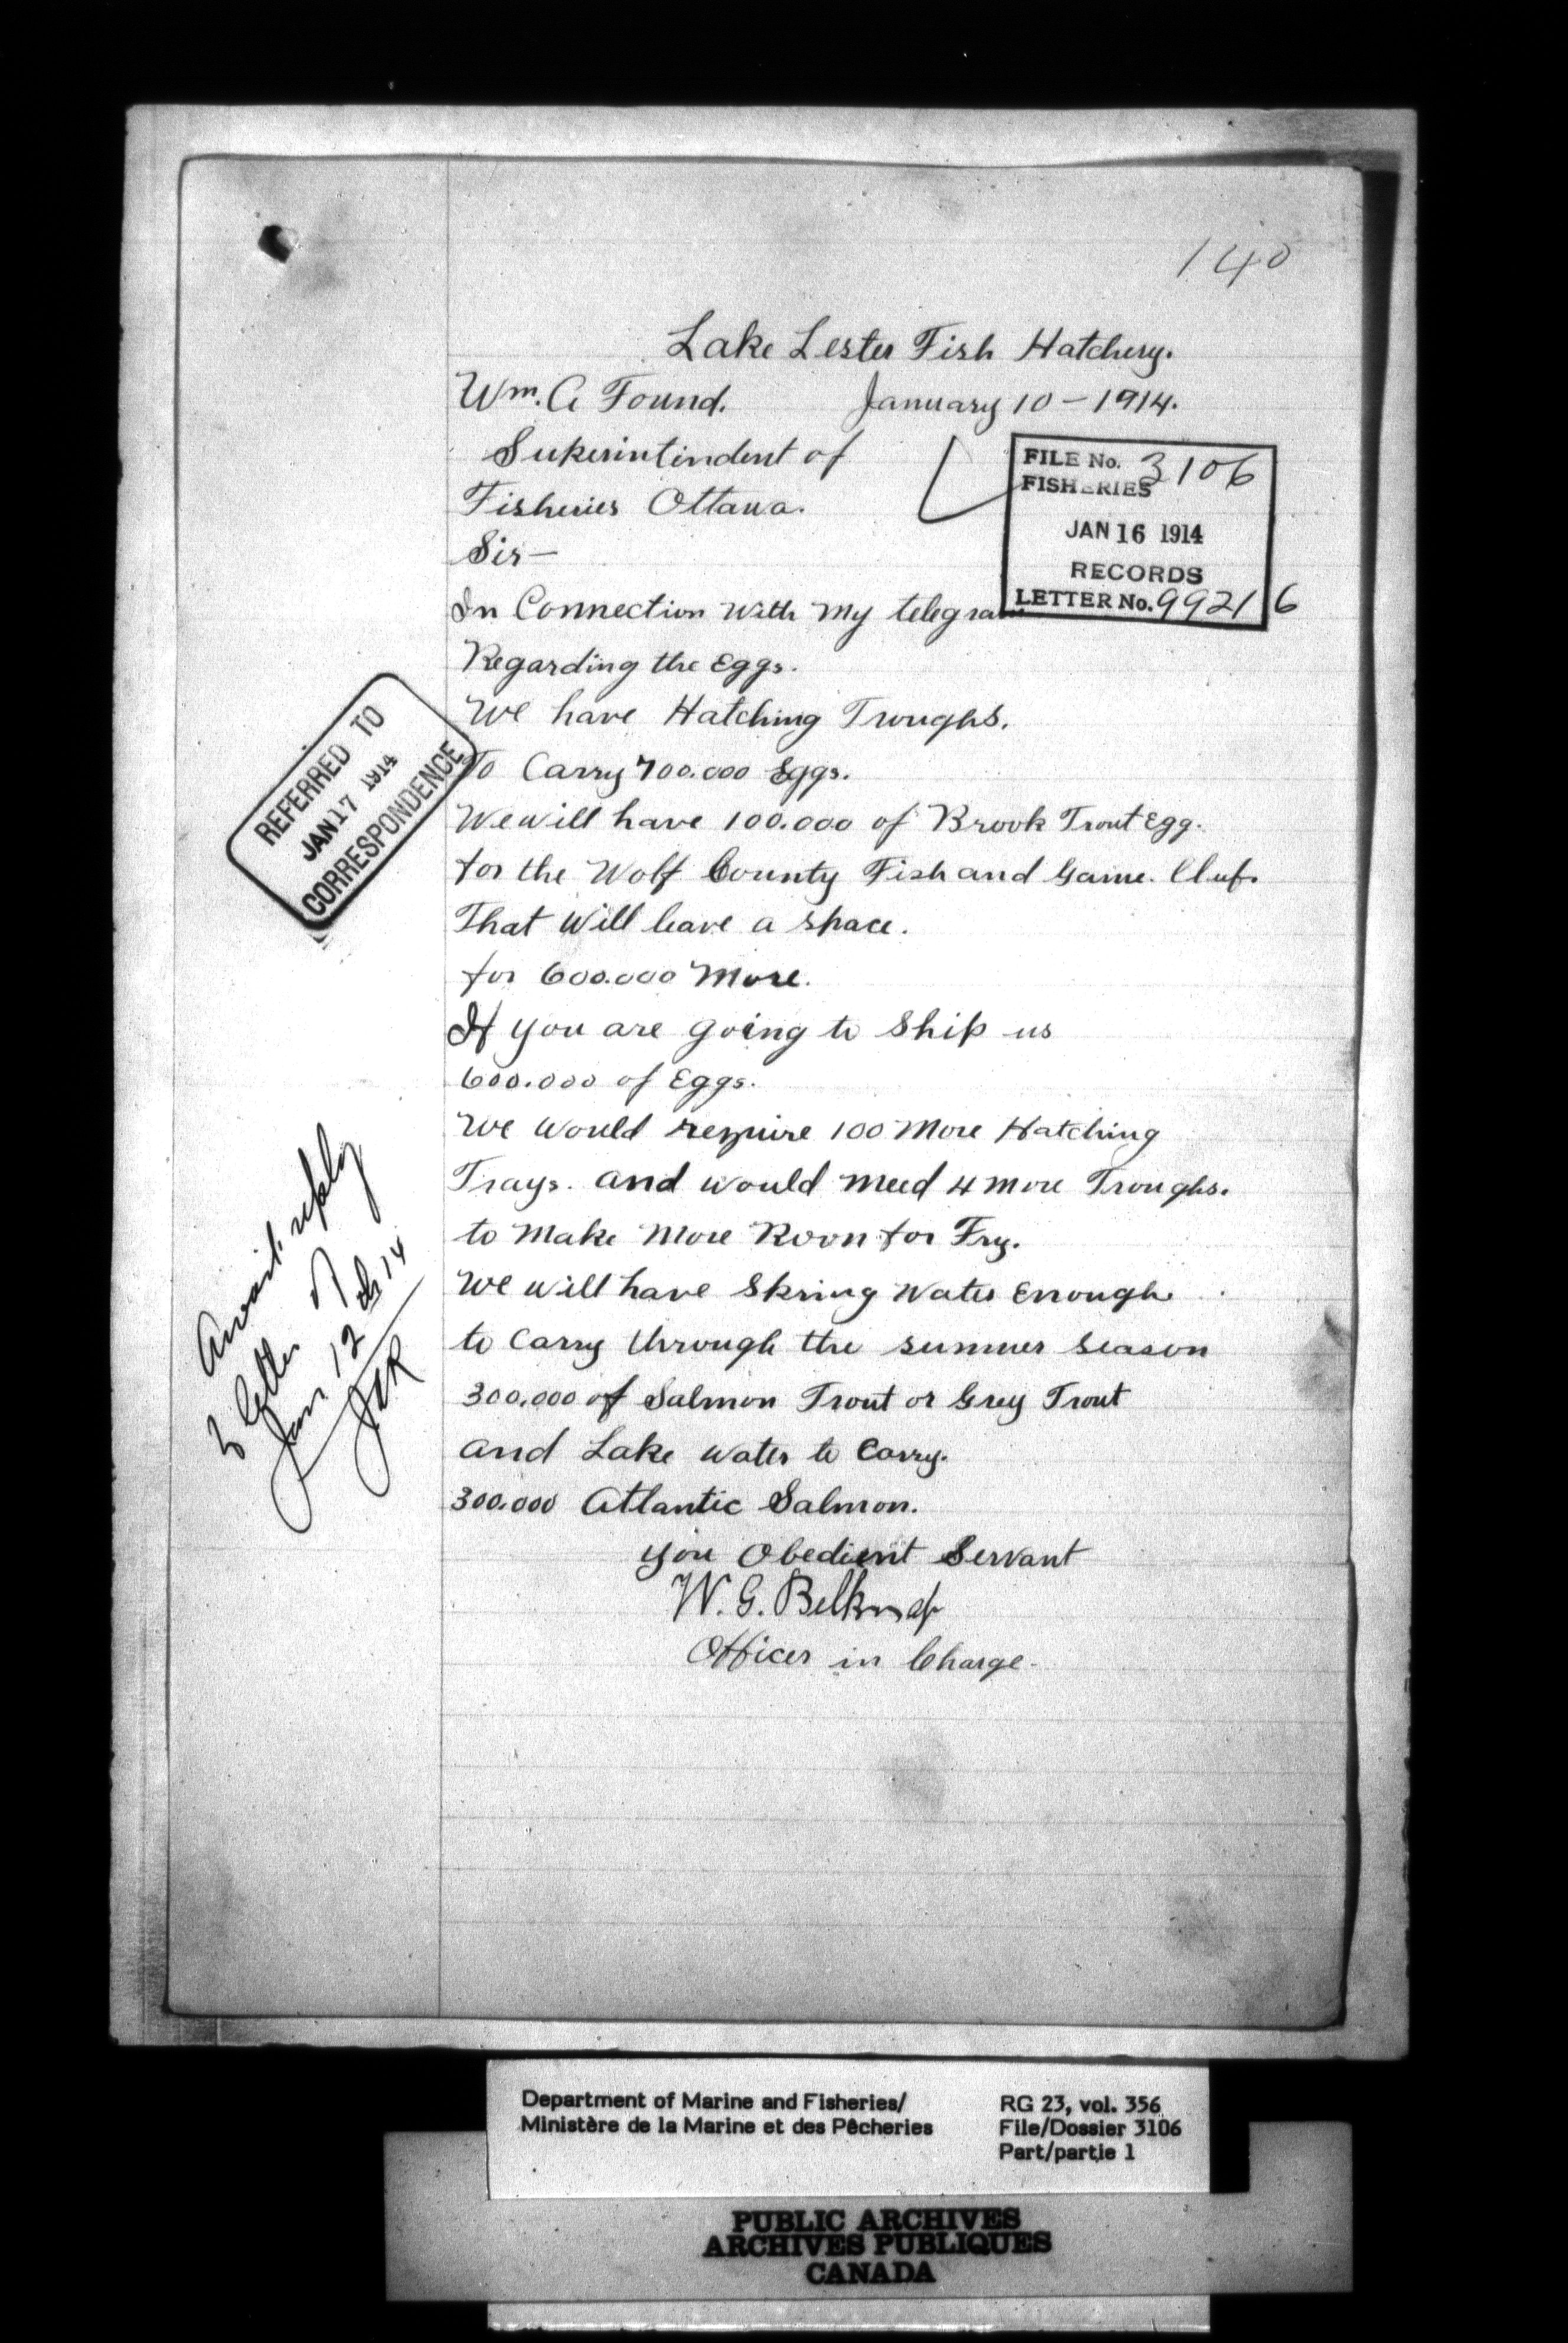 140
Lake Lester Fish Hatchery.
Wm. A Found. January 10 - 1914.
Superintindent of
Fisheries Ottawa.
Sir —
FILE No. 3106
FISHERIES
JAN 16 1914
RECORDS
LETTER No. 99216
In Connection with My telegram
Regarding the Eggs.
We have Hatching Troughs.
To Carry 700.000 Eggs.
We will have 100.000 of Brook Trout Egg.
for the Wolf County Fish and Game. Club.
That Will leave a space.
for 600.000 More.
If you are going to Ship us
600.000 of Eggs.
We Would require 100 More Hatching
Trays. and would need 4 more Troughs.
to Make More Room for Fry.
We will have Spring Water Enough
to Carry through the summer season
300.000 of Salmon Trout or Grey Trout
and Lake water to Carry.
300.000 Atlantic Salmon.
your Obedient Servant
W. G. Belknap
Officer in Charge.
REFERRED TO
JAN 17 1914
CORRESPONDENCE
Await reply
to letter of
Jan 12 14
Department of Marine and Fisheries/
Ministère de la Marine et des Pêcheries
RG 23, vol. 356
File/Dossier 3106
Part/partie 1
PUBLIC ARCHIVES
ARCHIVES PUBLIQUES
CANADA